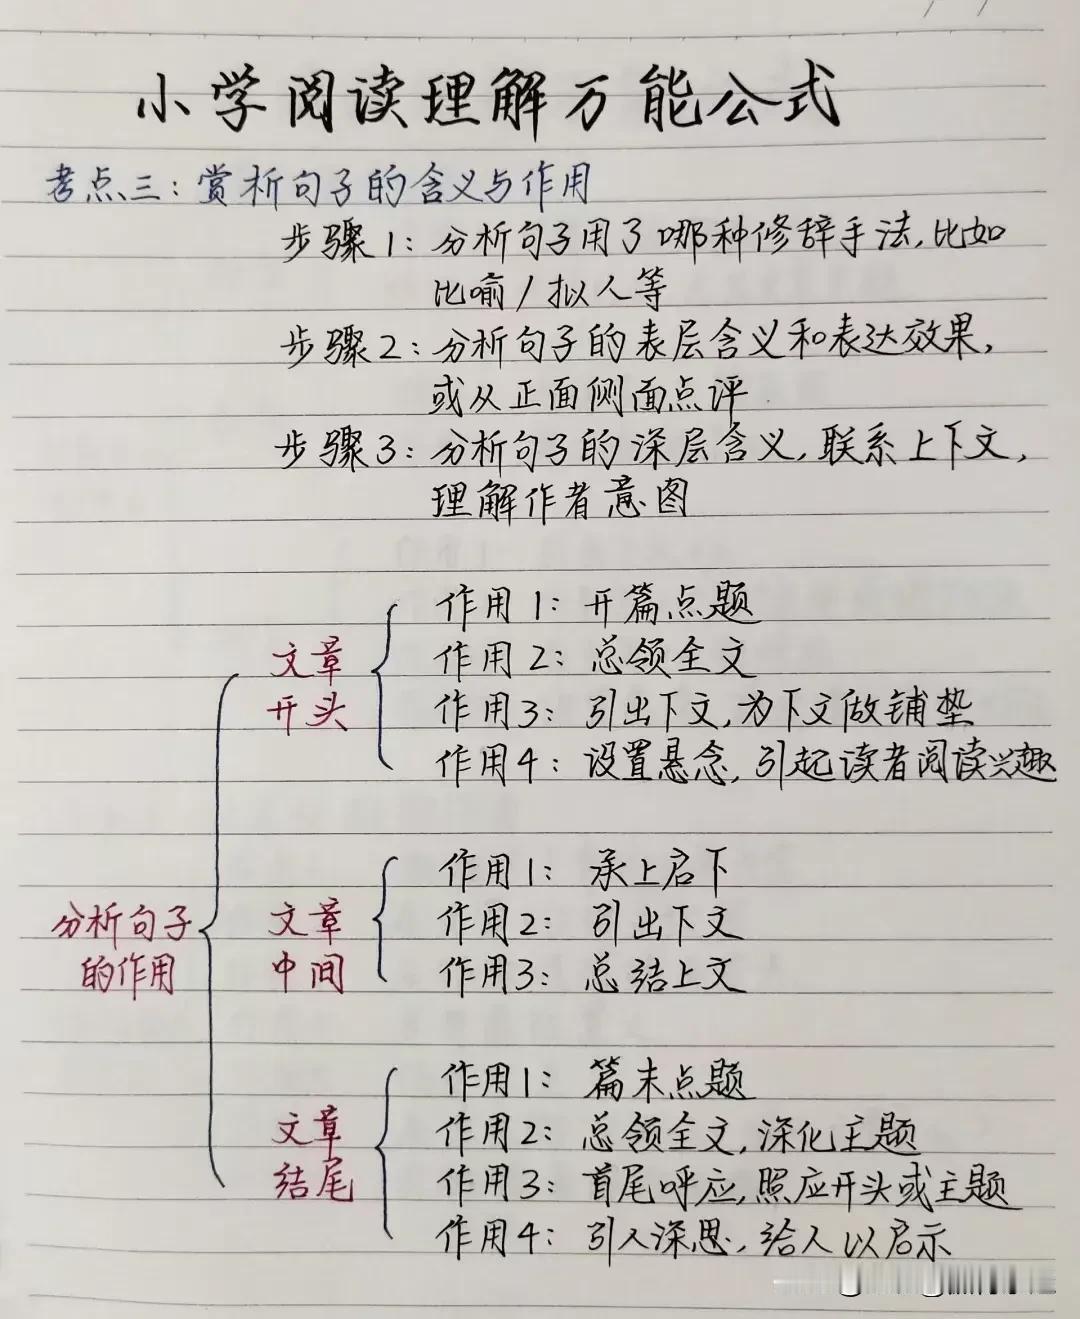 小学阅读理解万能公式
考点三：赏析句子的含义与作用
步骤1：分析句子用了哪种修辞手法，比如
比喻/拟人等
步骤2：分析句子的表层含义和表达效果，
或从正面侧面点评
步骤3：分析句子的深层含义，联系上下文，
理解作者意图
分析句子
的作用
文章
开头
作用1：开篇点题
作用2：总领全文
作用3：引出下文，为下文做铺垫
作用4：设置悬念，引起读者阅读兴趣
文章
中间
作用1：承上启下
作用2：引出下文
作用3：总结上文
文章
结尾
作用1：篇末点题
作用2：总领全文，深化主题
作用3：首尾呼应，照应开头或主题
作用4：引人深思，给人以启示